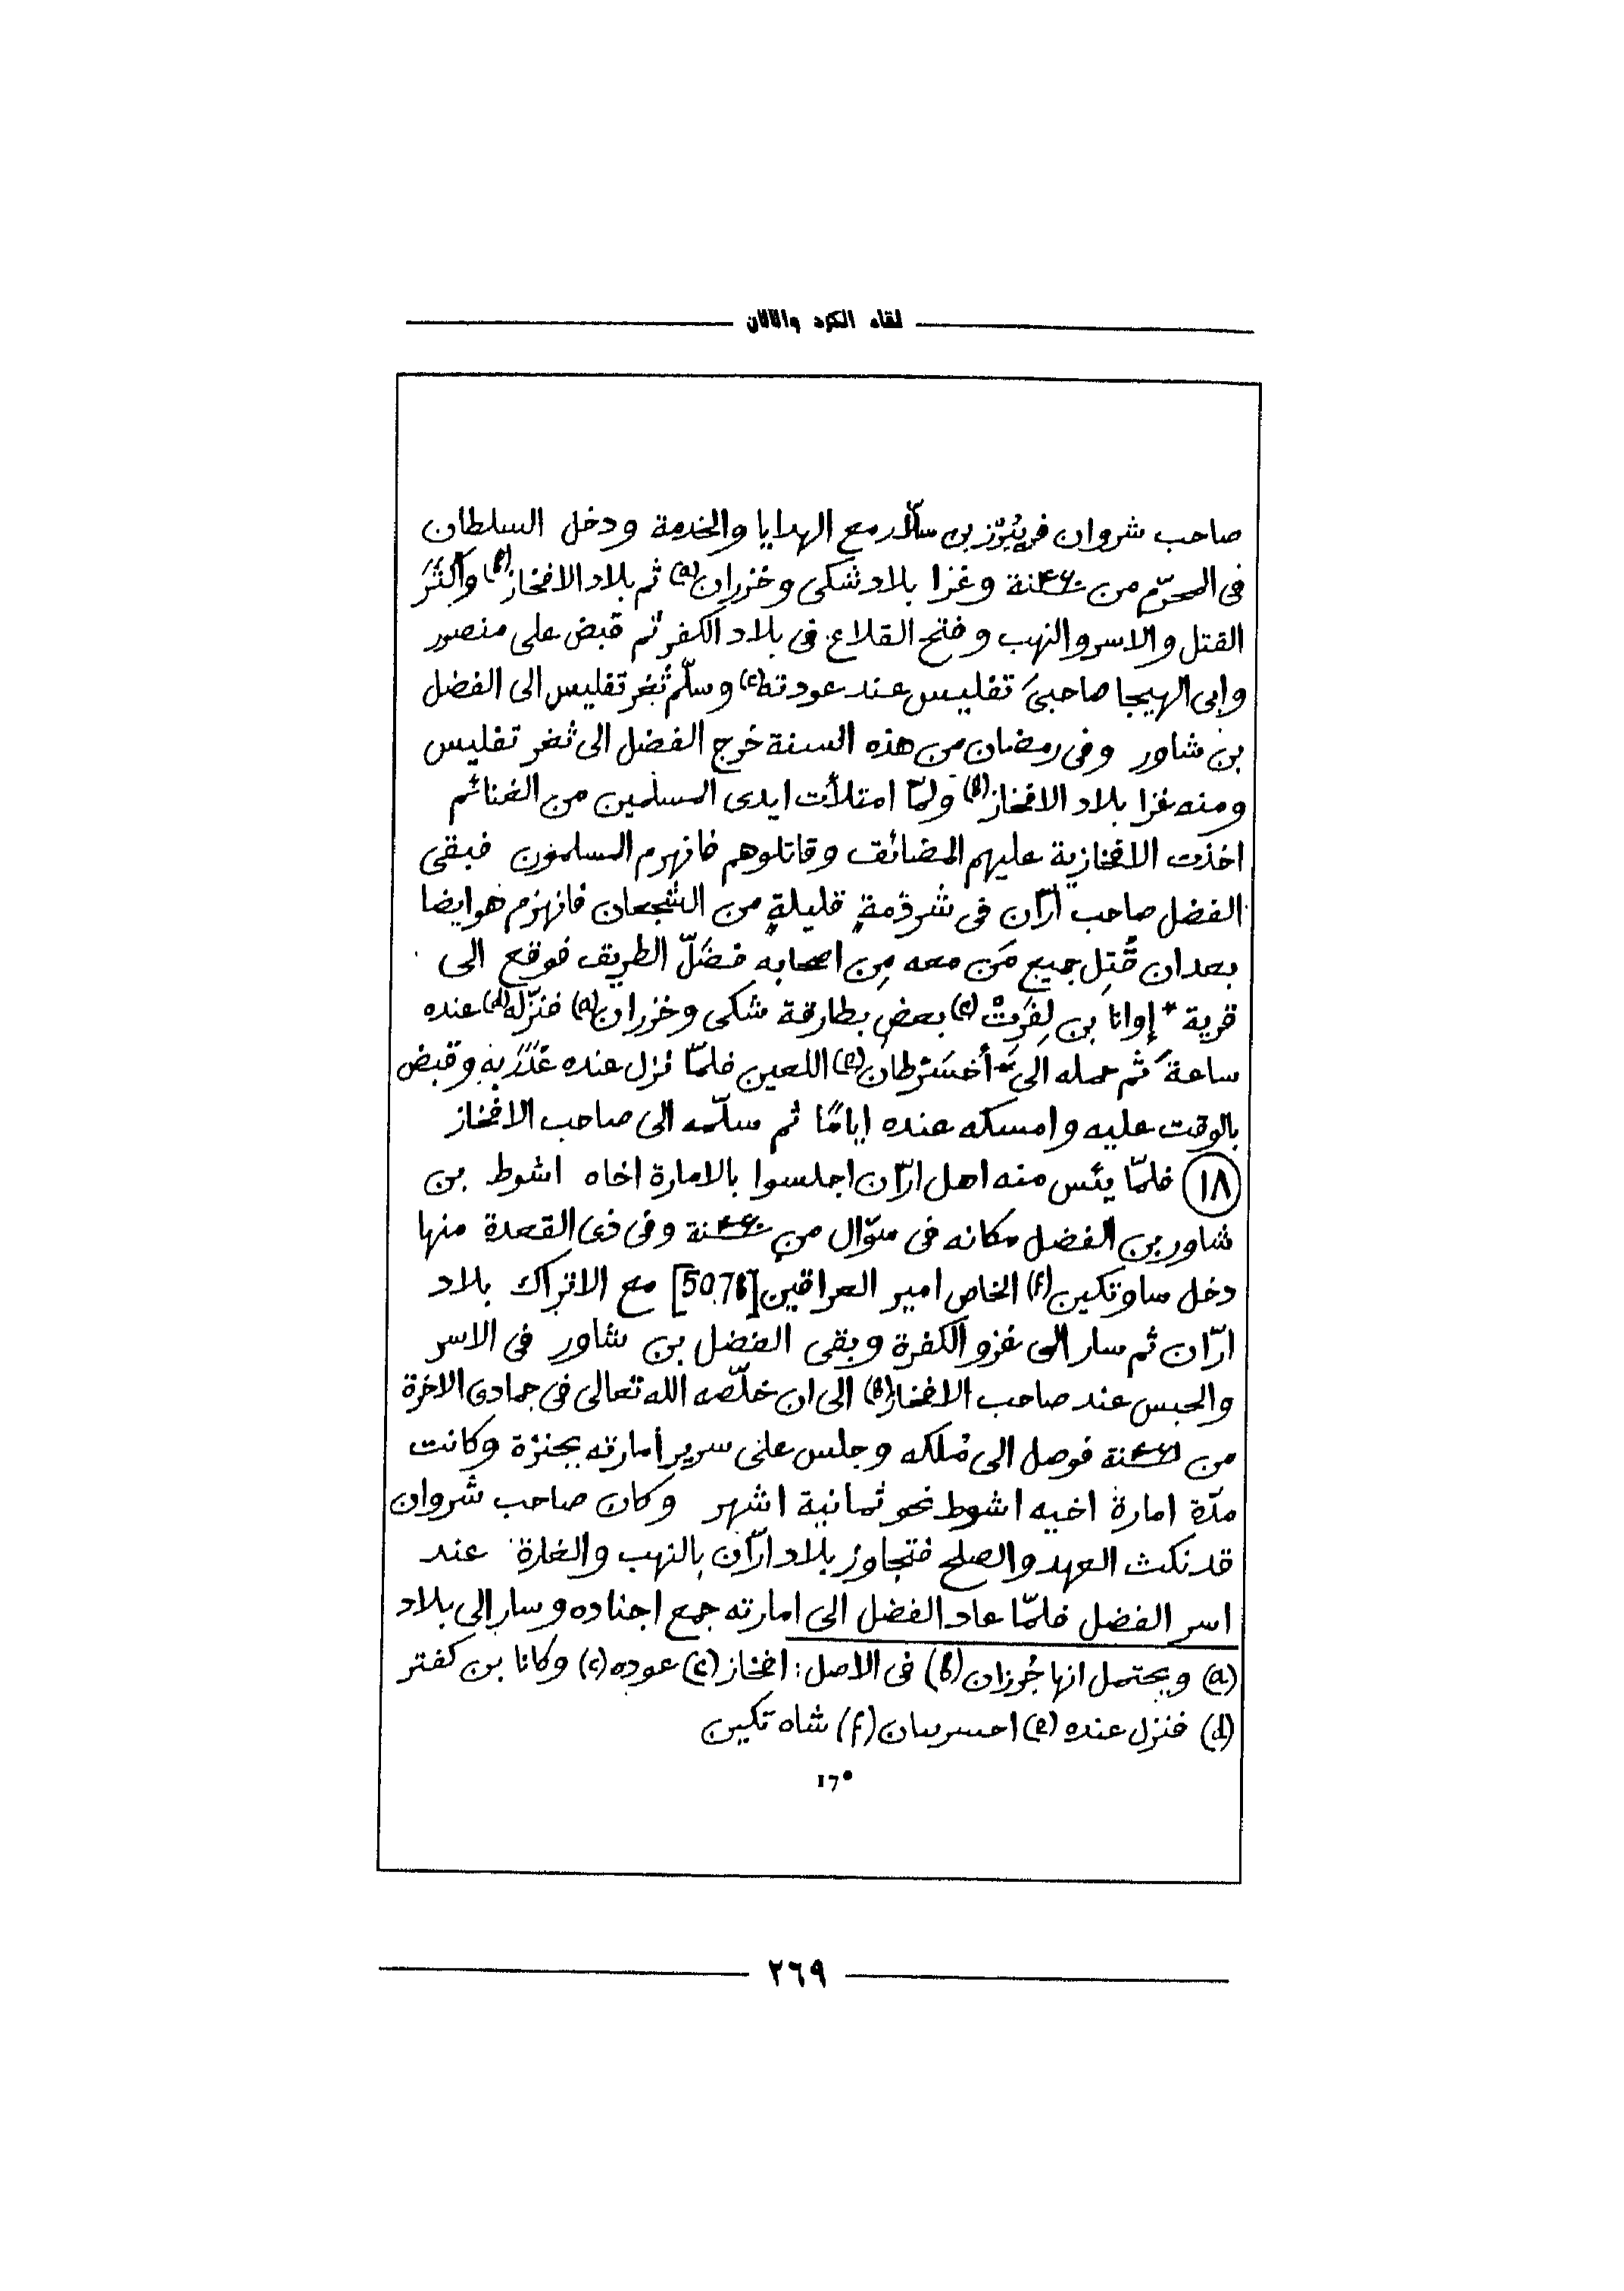 لقاء الكرد واللان
صاحب شروان فريبُرّز بن سلّار مع الهدايا والخدمة ودخل السلطان
فى المحرّم من سنة ٤٦٠ وغزا بلاد شكى وخزران(a) ثم بلاد الافخاز(b) واكثَرَ
القتل والاسر والنهب وفتح القلاع فى بلاد الكفر ثم قبض على منصور
وابى الهيجا صاحبىَ تفليس عند عودته(c) وسلّم ثغر تفليس الى الفضل
بن شاور وفى رمضان من هذه السنة خرج الفضل الى ثغر تفليس
ومنه غزا بلاد الافخاز(b) ولمّا امتلأت ايدى المسلمين من الغنائم
اخذت الافخازية عليهم المضائق وقاتلوهم فانهزم المسلمون فبقى
الفضل صاحب ارّان فى شرذمةٍ قليلةٍ من الشجعان فانهزم هو ايضا
بعد ان قُتِل جميع مَن معه مِن اصحابه فضَلّ الطريق فوقع الى
قرية * إوانا بن لِفَرِتْ(c) بعض بطارقة شكى وخزران(a) فنزّله(d) عنده
ساعةً ثم حمله الى * أخسَرْطان(e) اللعين فلمّا نزل عنده غَدَرَ بهِ وقبض
بالوقت عليه وامسكه عنده ايامًا ثم سلّمه الى صاحب الافخاز
(١٨) فلمّا يئس منه اهل ارّان اجلسوا بالامارة اخاه اشوط بن
شاور بن الفضل مكانه فى شوّال من سنة ٤٦٠ وفى ذى القعدة منها
دخل ساوتكين(f) الخاص امير العراقين [507b] مع الاتراك بلاد
ارّان ثم سار الى غزو الكفرة وبقى الفضل بن شاور فى الاسر
والحبس عند صاحب الافخاز(b) الى ان خلّصه الله تعالى فى جمادى الاخرة
من سنة ٤٦١ فوصل الى مُلكه وجلس على سرير امارته بجنزة وكانت
مدّة امارة اخيه اشوط نحو ثمانية اشهر وكان صاحب شروان
قد نكث العهد والصلح فتجاوز بلاد ارّان بالنهب والغارة عند
اسر الفضل فلمّا عاد الفضل الى امارته جمع اجناده وسار الى بلاد
(a) ويحتمل انها جُرزان (b) فى الاصل: افخاز (c) عوده (c) وكانا بن كفتر
(d) فنزل عنده (e) احسرسان (f) شاه تكين
17*
٢٦٩